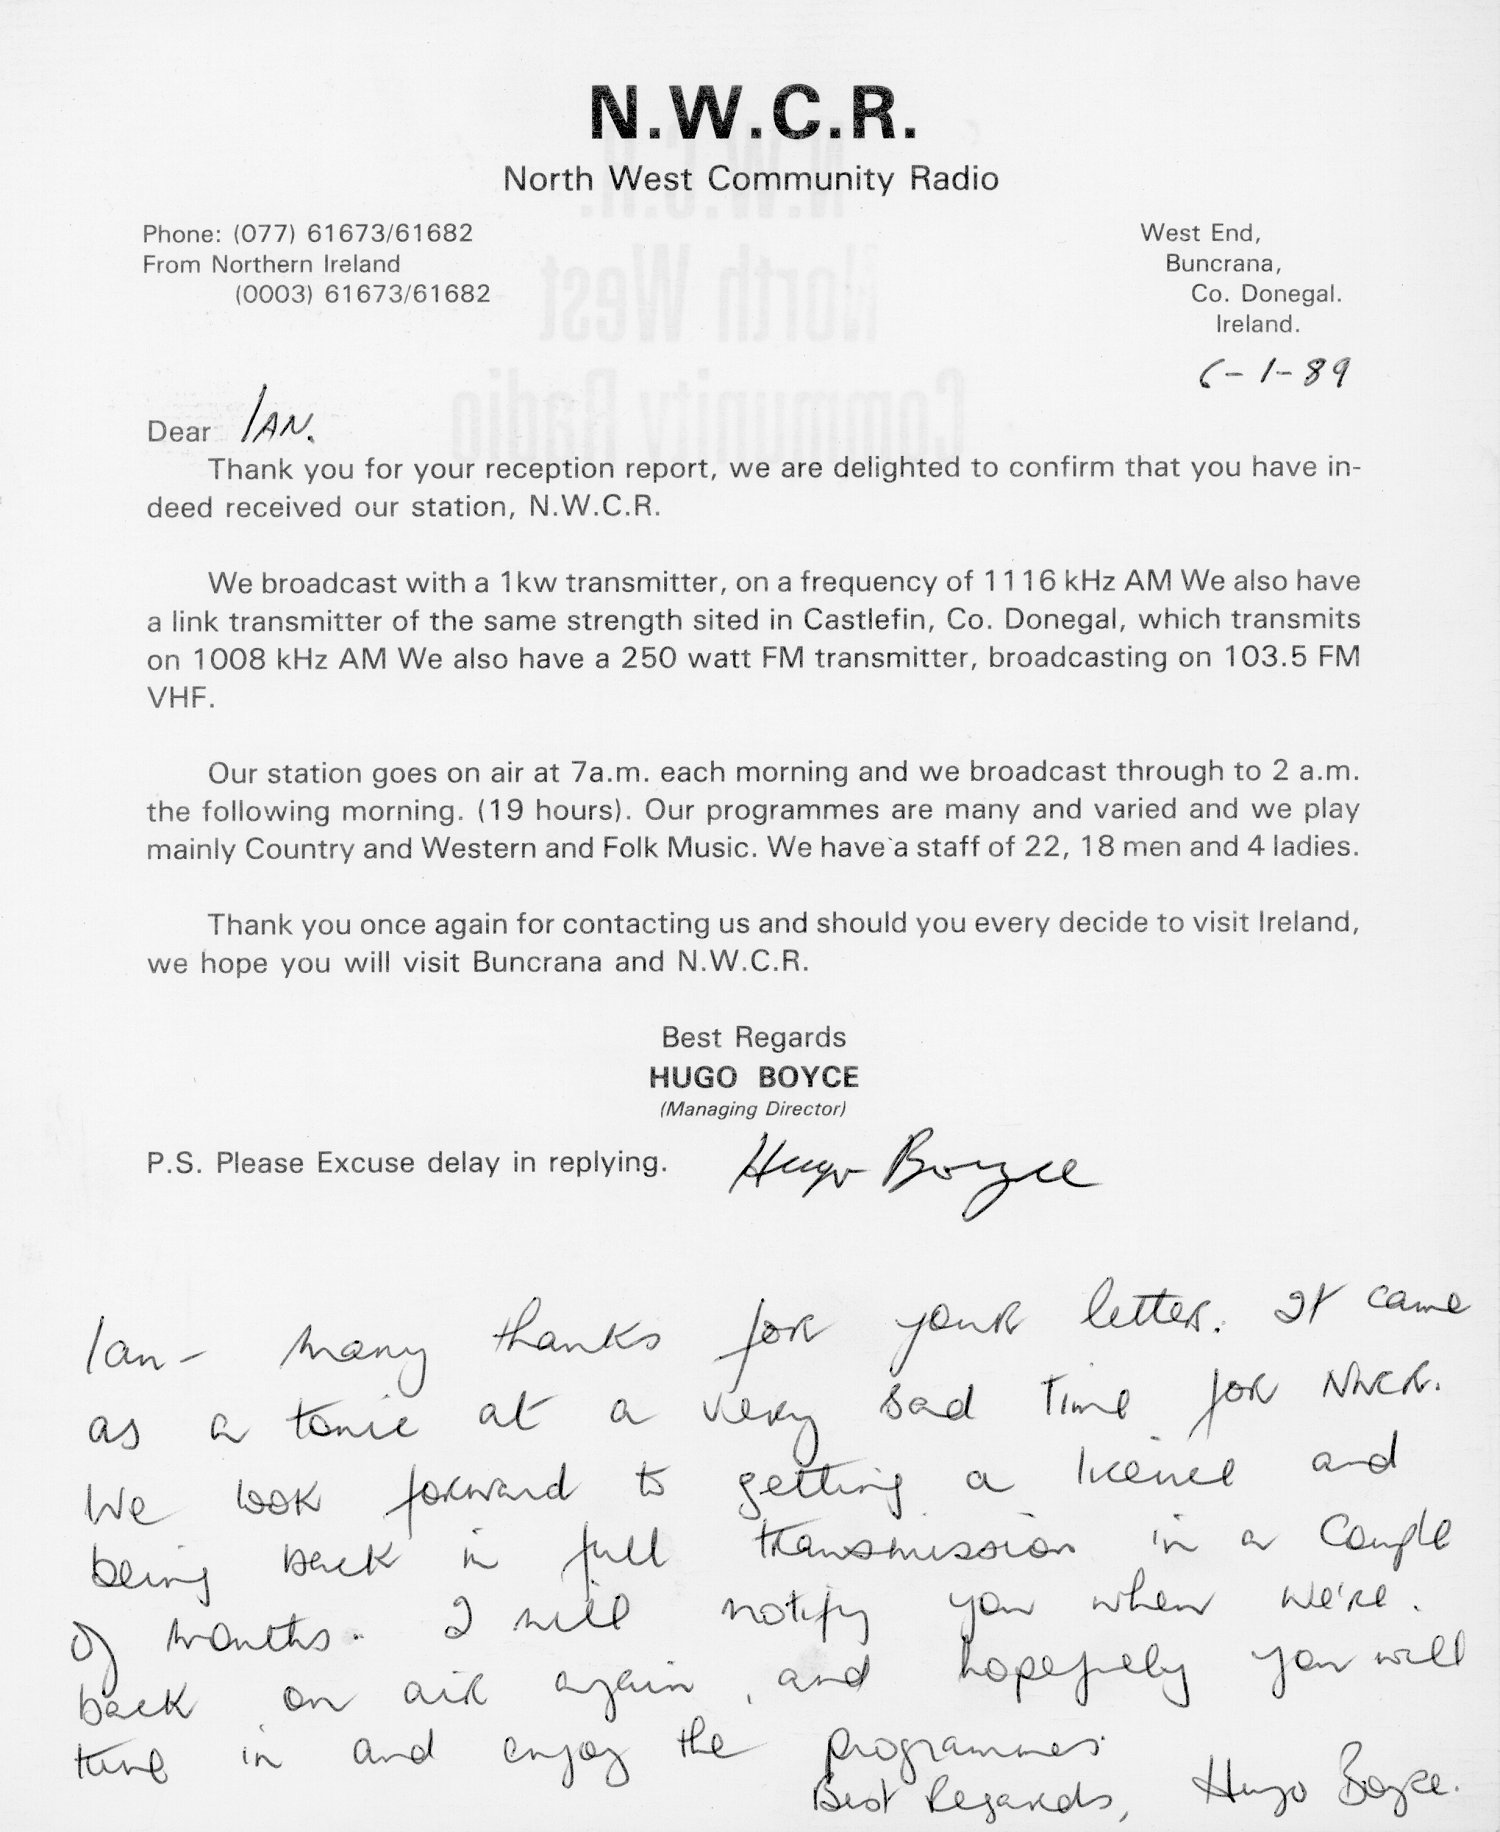 N.W.C.R.
North West Community Radio
Phone: (077) 61673/61682
From Northern Ireland
(0003) 61673/61682
West End,
Buncrana,
Co. Donegal.
Ireland.
6-1-89
Dear IAN.
Thank you for your reception report, we are delighted to confirm that you have in-
deed received our station, N.W.C.R.
We broadcast with a 1kw transmitter, on a frequency of 1116 kHz AM We also have
a link transmitter of the same strength sited in Castlefin, Co. Donegal, which transmits
on 1008 kHz AM We also have a 250 watt FM transmitter, broadcasting on 103.5 FM
VHF.
Our station goes on air at 7a.m. each morning and we broadcast through to 2 a.m.
the following morning. (19 hours). Our programmes are many and varied and we play
mainly Country and Western and Folk Music. We have a staff of 22, 18 men and 4 ladies.
Thank you once again for contacting us and should you every decide to visit Ireland,
we hope you will visit Buncrana and N.W.C.R.
Best Regards
HUGO BOYCE
(Managing Director)
P.S. Please Excuse delay in replying.
Hugo Boyce
Ian - many thanks for your letter. It came
as a tonic at a very sad time for NWCR.
We look forward to getting a licence and
being back in full transmission in a couple
of months. I will notify you when we're.
back on air again, and hopefully you will
tune in and enjoy the programmes.
Best Regards, Hugo Boyce.
North West
Community Radio
N.W.C.R.